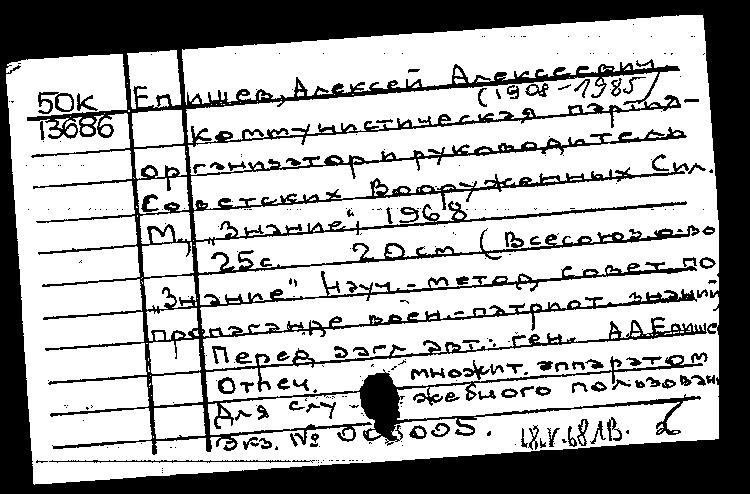 50К Епишев, Алексей Алексеевич.
(1908-1985)
13686 Коммунистическая партия-
организатор и руководитель
Советских Вооруженных Сил.
М., „Знание", 1968
25с. 20см (Всесоюз. о-во
„Знание". Науч.-метод. совет по
пропаганде воен.-патриот. знаний
Перед загл. авт.: ген. А.А.Епише
Отпеч. множит. аппаратом
Для слу - жебного пользован
Экз. № 000005. 18.V.68